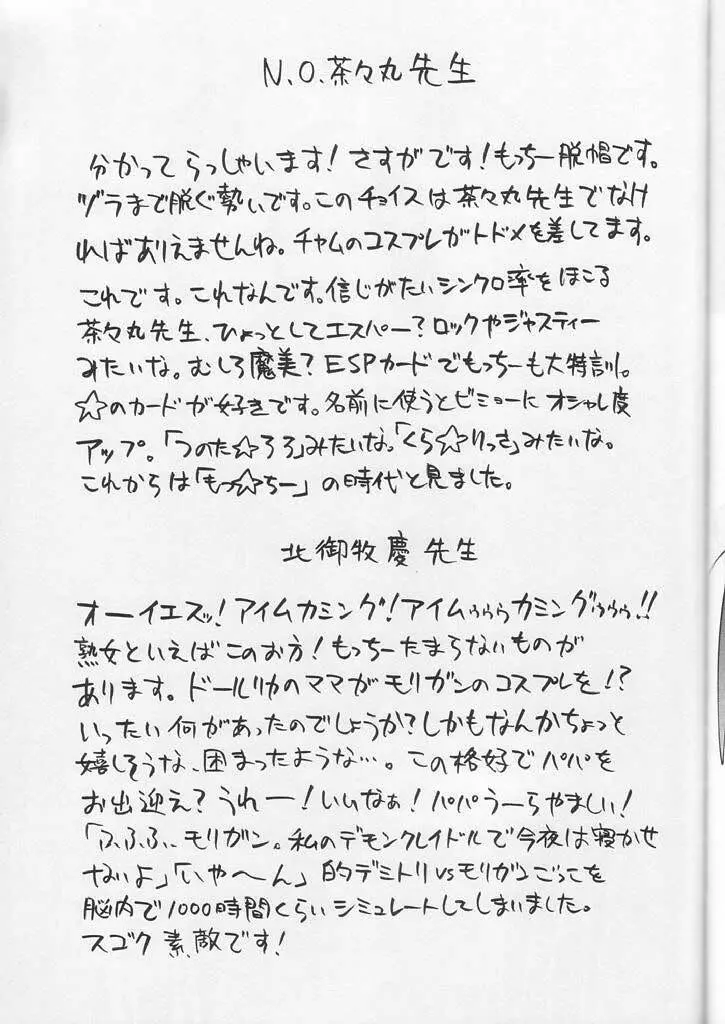 N.O.茶々丸先生
分かってらっしゃいます！さすがです！もっちー脱帽です。
ヅラまで脱ぐ勢いです。このチョイスは茶々丸先生でなけ
ればありえませんね。チャムのコスプレがトドメを差してます。
これです。これなんです。信じがたいシンクロ率をほこる
茶々丸先生、ひょっとしてエスパー？ロックやジャスティー
みたいな。むしろ魔美？ESPカードでもっちーも大特訓。
☆のカードが好きです。名前に使うとビミョーにオシャレ度
アップ。「つのた☆ろう」みたいな。「くら☆りっさ」みたいな。
これからは「もっ☆ちー」の時代と見ました。
北御牧慶先生
オーイエスッ！アイムカミング！アイムゥゥゥカミングゥゥゥ!!
熟女といえばこのお方！もっちーたまらないものが
あります。ドールリカのママがモリガンのコスプレを!?
いったい何があったのでしょうか？しかもなんかちょっと
嬉しそうな、困まったような…。この格好でパパを
お出迎え？うれー！いいなぁ！パパうーらやましい！
「ふふふ…モリガン。私のデモンクレイドルで今夜は寝かせ
ないよ」「いや〜ん」的デミトリvsモリガンごっこを
脳内で1000時間くらいシミュレートしてしまいました。
スゴク素敵です！